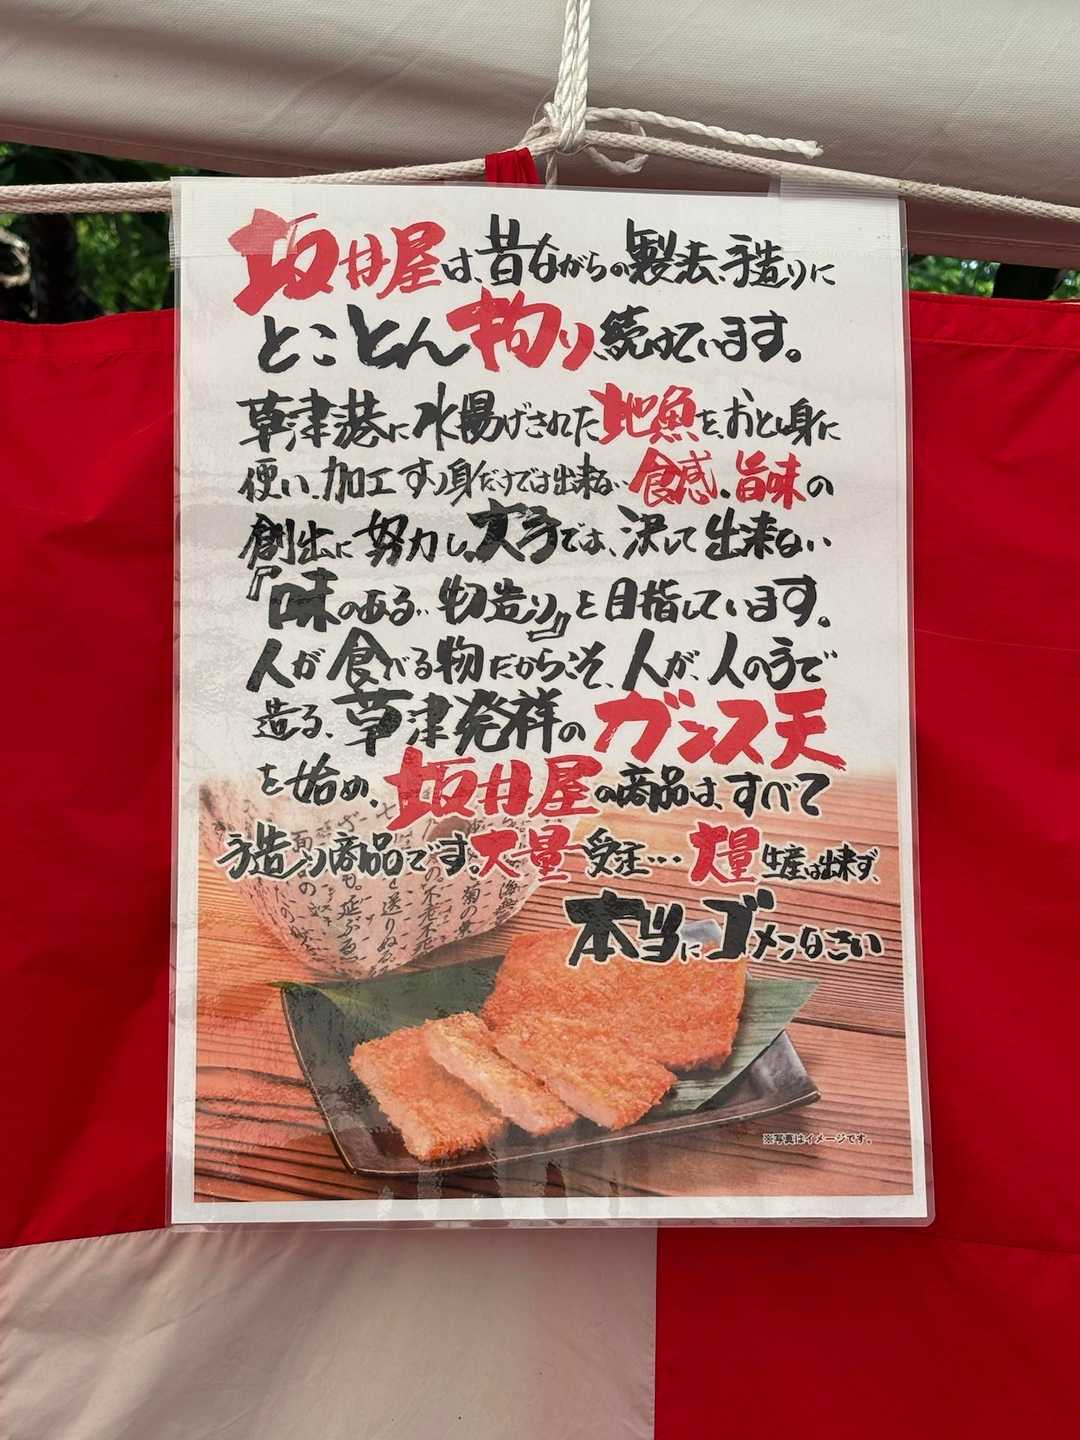 坂井屋は、昔ながらの製法、手造りに
とことん拘り、続けています。
草津港に水揚げされた地魚を、おとし身に
使い、加工すり身だけでは出来ない食感、旨味の
創出に努力し、大手では、決して出来ない
『味のある、物造り』を目指しています。
人が食べる物だからこそ、人が、人の手で
造る、草津発祥のガンス天
を始め、坂井屋の商品は、すべて
手造り商品です。大量受注…大量生産は出来ず、
本当にゴメンなさい
※写真はイメージです。